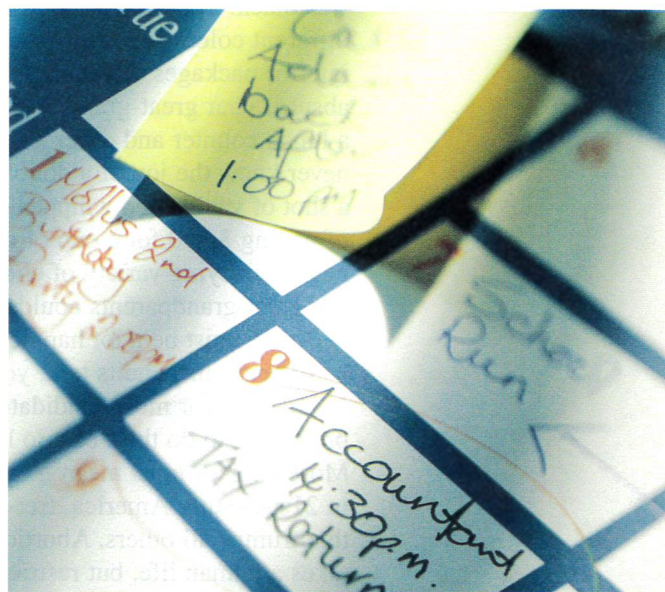 ue
Ca
Ada
back
Aft.
1.00 pm
1 Mollys 2nd
Birthday
Party 2.00pm
School
Run
8 Accountant
4.30p.m.
TAX Return